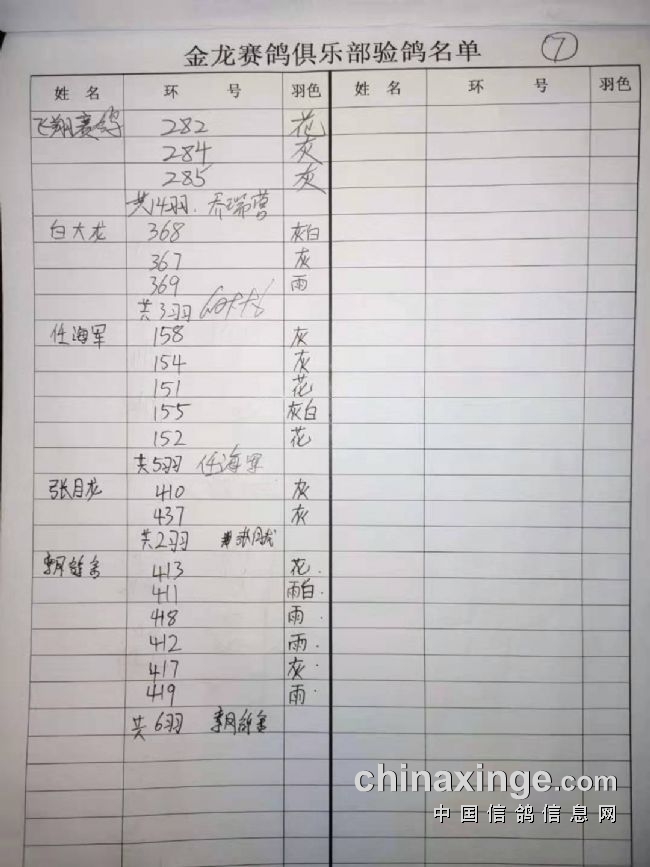 金龙赛鸽俱乐部验鸽名单 7
姓名 环号 羽色 姓名 环号 羽色
飞翔赛鸽 282 花
284 灰
285 灰
共14羽.
白大龙 368 灰白
367 灰
369 雨
共3羽
任海军 158 灰
154 灰
151 花
155 灰白
152 花
共5羽 任海军
张月龙 410 灰
437 灰
共2羽 张月龙
413 花.
411 雨白.
418 雨.
412 雨.
417 灰.
419 雨.
共6羽
chinaxinge.com
中国信鸽信息网